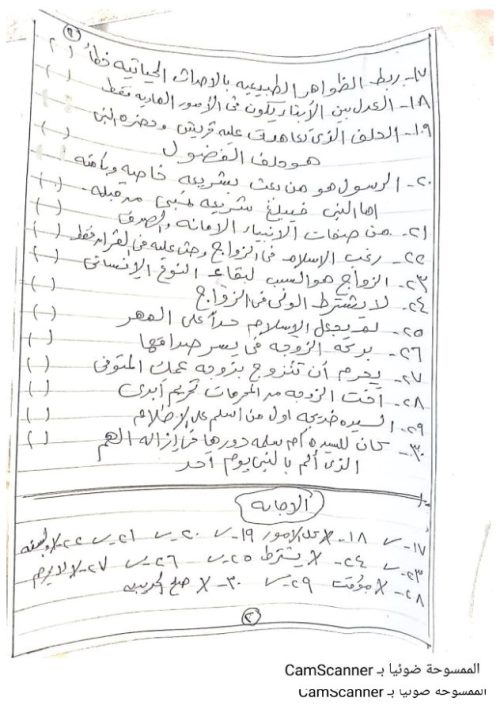 (٢)
١٧- ربط الظواهر الطبيعيه بالاحداث الحياتيه خطأ ( )
١٨- العدل بين الأبناء يكون فى الأمور الماديه فقط ( )
١٩- الحلف الذى تعاهدت عليه قريش وحضره النبى
هو حلف الفضول ( )
٢٠- الرسول هو من بعث بشريعه خاصه وبأمته
اما النبى فيبلغ شريعه نبى من قبله ( )
٢١- من صفات الانبياء الامانه والصدق ( )
٢٢- رغب الاسلام فى الزواج وحث عليه فى القرآن فقط ( )
٢٣- الزواج هو السبب لبقاء النوع الإنسانى ( )
٢٤- لا يشترط الولى فى الزواج ( )
٢٥- لم يجعل الإسلام حداً على المهر ( )
٢٦- بركة الزوجه فى يسر صداقها ( )
٢٧- يحرم أن تتزوج بزوجه عمك المتوفى ( )
٢٨- أخت الزوجه من المحرمات تحريم أبدى ( )
٢٩- السيده خديجه اول من اسلم على الإطلام ( )
٣٠- كان للسيده أم سلمه دورها فى إزاله الهم ( )
الذى ألم بالنبى يوم أحد
الاجابه
١٧- ✓ ١٨- × الامور ١٩- ✓ ٢٠- ✓ ٢١- ✓ ٢٢- × والسنه
٢٣- ✓ ٢٤- × يشترط ٢٥- ✓ ٢٦- ✓ ٢٧- × لا يحرم
٢٨- × مؤقت ٢٩- ✓ ٣٠- × صلح الحديبيه
(٢)
الممسوحة ضوئيا بـ CamScanner
الممسوحة ضوئيا بـ CamScanner